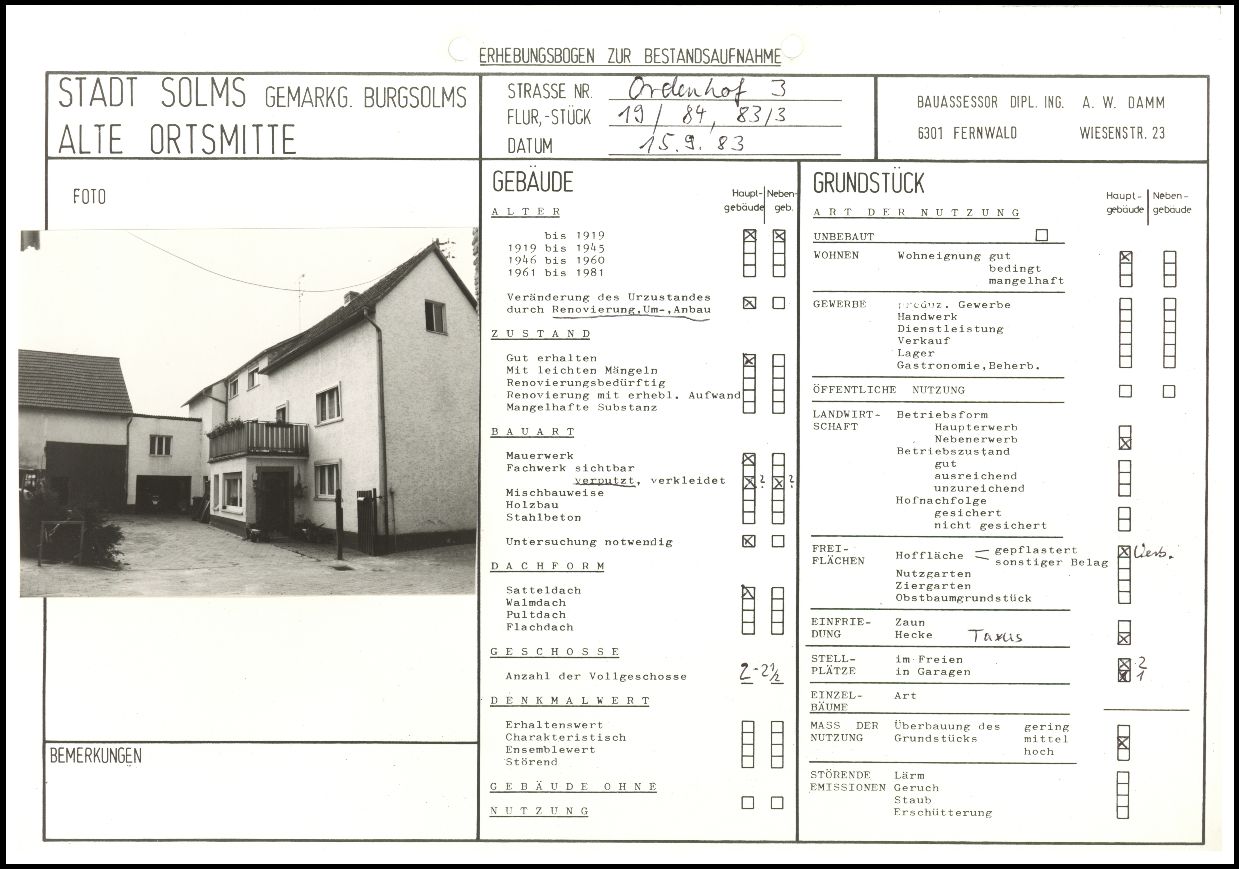 ERHEBUNGSBOGEN ZUR BESTANDSAUFNAHME
STADT SOLMS GEMARKG. BURGSOLMS
ALTE ORTSMITTE
STRASSE NR. Ordenhof 3
FLUR,-STÜCK 19 / 84, 83/3
DATUM 15.9.83
BAUASSESSOR DIPL. ING. A. W. DAMM
6301 FERNWALD WIESENSTR. 23
FOTO
BEMERKUNGEN
GEBÄUDE
Haupt- Neben-
gebäude geb.
ALTER
bis 1919
1919 bis 1945
1946 bis 1960
1961 bis 1981
Veränderung des Urzustandes
durch Renovierung,Um-,Anbau
ZUSTAND
Gut erhalten
Mit leichten Mängeln
Renovierungsbedürftig
Renovierung mit erhebl. Aufwand
Mangelhafte Substanz
BAUART
Mauerwerk
Fachwerk sichtbar
verputzt, verkleidet ? ?
Mischbauweise
Holzbau
Stahlbeton
Untersuchung notwendig
DACHFORM
Satteldach
Walmdach
Pultdach
Flachdach
GESCHOSSE
Anzahl der Vollgeschosse 2-2½
DENKMALWERT
Erhaltenswert
Charakteristisch
Ensemblewert
Störend
GEBÄUDE OHNE
NUTZUNG
GRUNDSTÜCK
Haupt- Neben-
gebäude gebäude
ART DER NUTZUNG
UNBEBAUT
WOHNEN Wohneignung gut
bedingt
mangelhaft
GEWERBE Gewerbe
Handwerk
Dienstleistung
Verkauf
Lager
Gastronomie,Beherb.
ÖFFENTLICHE NUTZUNG
LANDWIRT- Betriebsform
SCHAFT Haupterwerb
Nebenerwerb
Betriebszustand
gut
ausreichend
unzureichend
Hofnachfolge
gesichert
nicht gesichert
FREI- Hoffläche gepflastert
FLÄCHEN sonstiger Belag
Nutzgarten
Ziergarten
Obstbaumgrundstück
EINFRIE- Zaun
DUNG Hecke Taxus
STELL- im Freien 2
PLÄTZE in Garagen 1
EINZEL- Art
BÄUME
MASS DER Überbauung des gering
NUTZUNG Grundstücks mittel
hoch
STÖRENDE Lärm
EMISSIONEN Geruch
Staub
Erschütterung